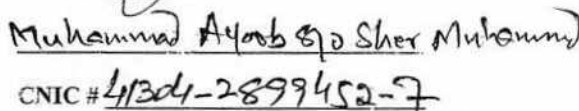 Muhammad Ayoob S/o Sher Muhammad
CNIC # 41304-2899452-7